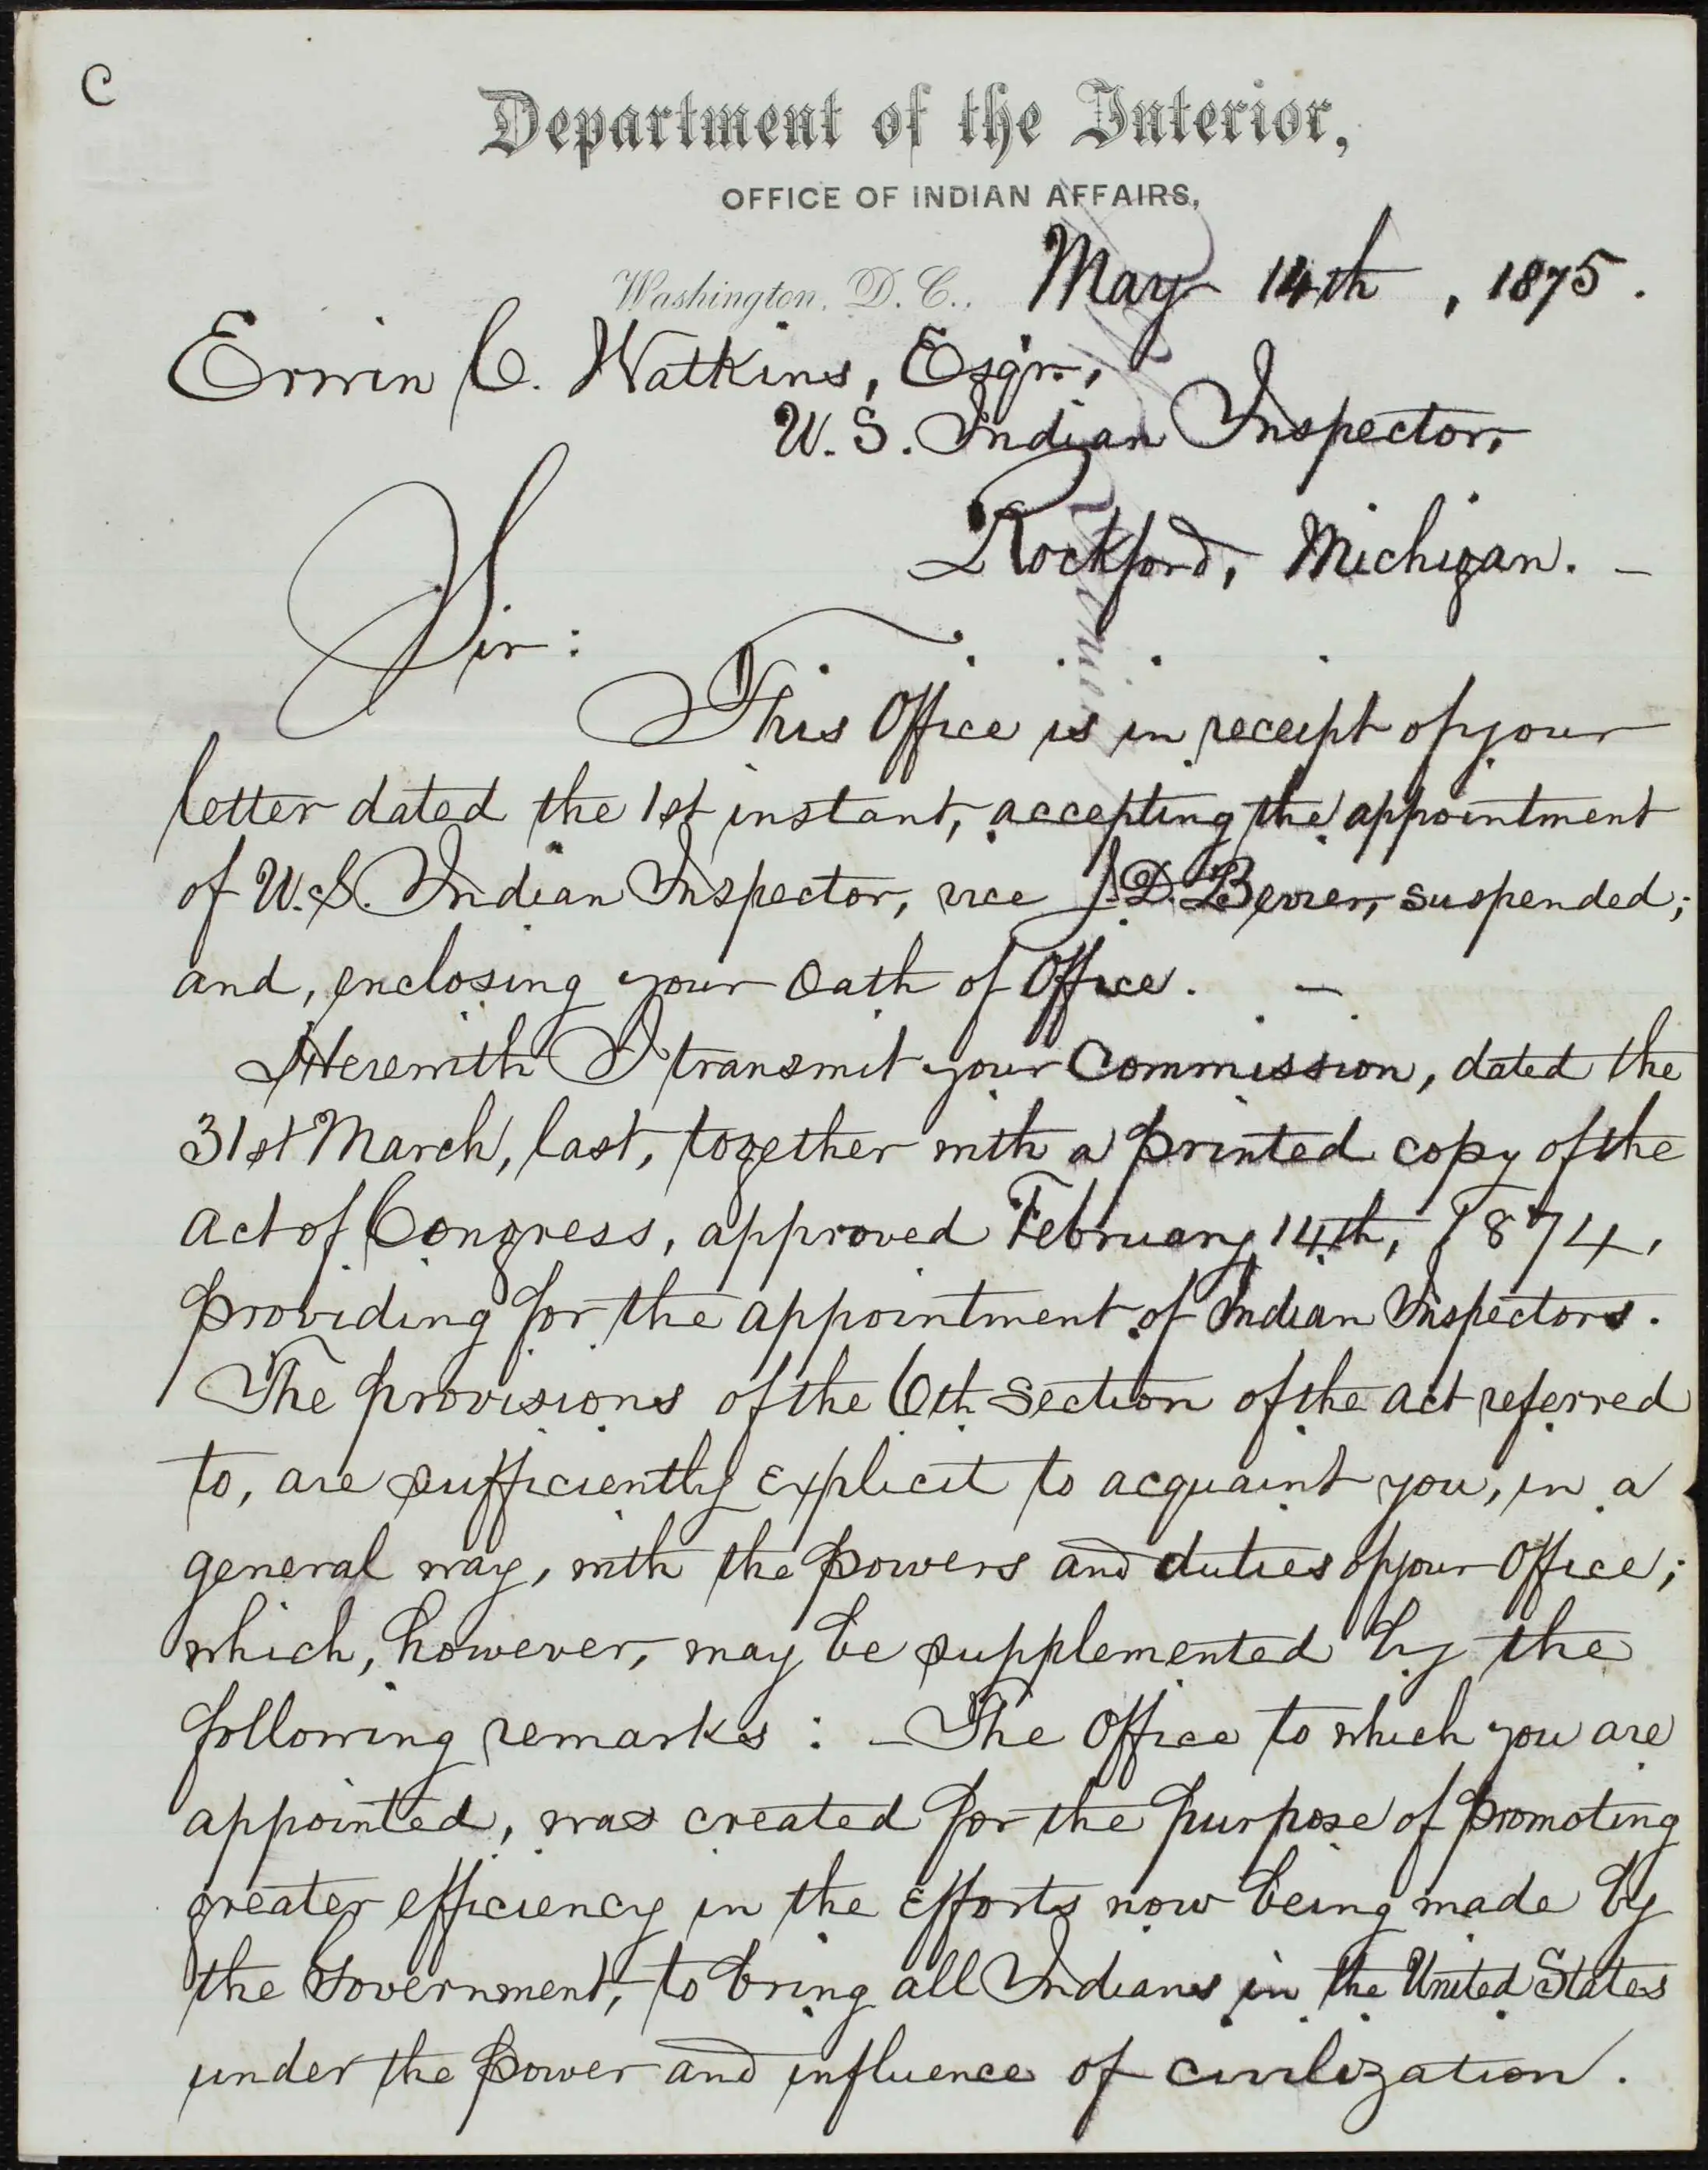 C
Department of the Interior,
OFFICE OF INDIAN AFFAIRS,
Washington, D. C., May 14th, 1875.
Erwin C. Watkins, Esqr.,
U. S. Indian Inspector,
Rockford, Michigan. –
Sir:
This Office is in receipt of your
letter dated the 1st instant, accepting the appointment
of U.S. Indian Inspector, vice J. D. Bevier, suspended;
and, enclosing your Oath of Office. –
Herewith I transmit your Commission, dated the
31st March, last, together with a printed copy of the
act of Congress, approved February 14th, 1874,
providing for the appointment of Indian Inspectors.
The provisions of the 6th Section of the act referred
to, are sufficiently explicit to acquaint you, in a
general way, with the powers and duties of your Office;
which, however, may be supplemented by the
following remarks: – The Office to which you are
appointed, was created for the purpose of promoting
greater efficiency in the efforts now being made by
the Government, to bring all Indians in the United States
under the power and influence of civilization.